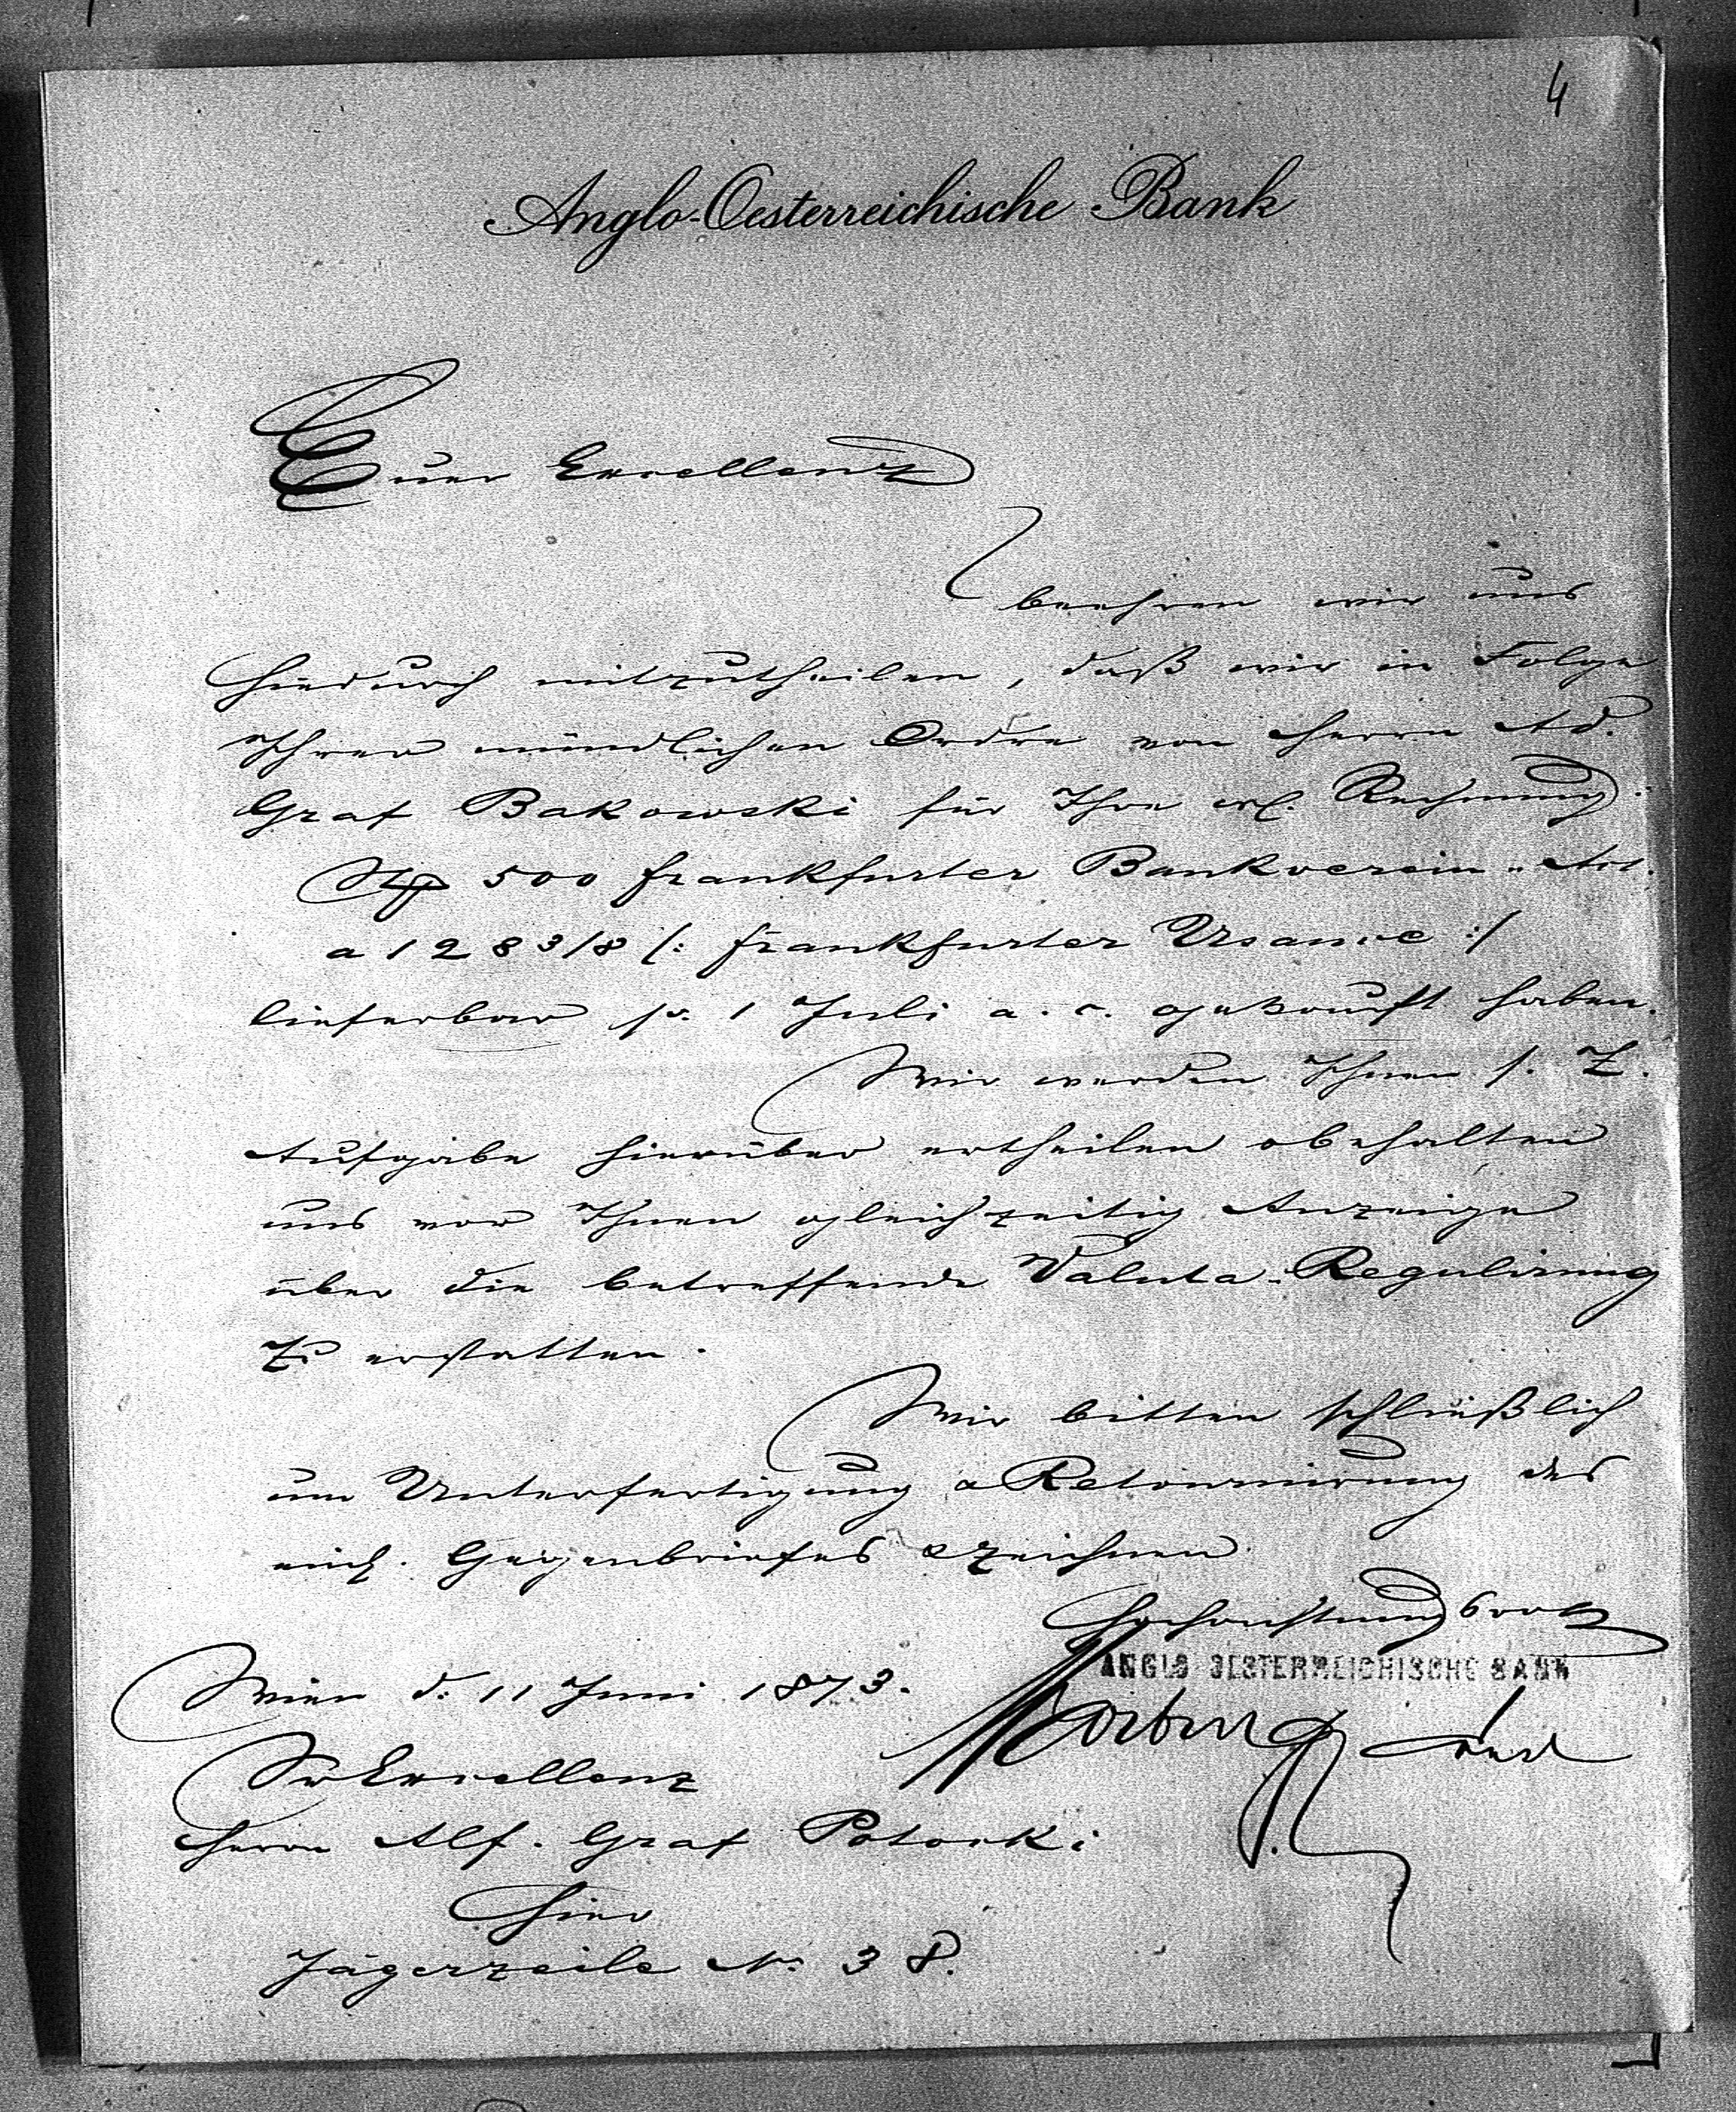 4
Anglo-Oesterreichische Bank
Euer Excellenz
beehren wir uns
hiedurch mitzutheilen, daß wir in Folge
Ihrer mündlichen Ordre von Herrn Ad.
Graf Bakowski für Ihre Rechnung
500 Frankfurter Bankverein-Act.
a 128 3/8 /: Frankfurter Usance :/
lieferbar pr. 1 Juli a. c. gekauft haben.
Wir werden Ihnen s. Z.
Aufgabe hierüber ertheilen & behalten
uns vor Ihnen gleichzeitig Anzeige
über die betreffende Valuta-Regulirung
zu erstatten.
Wir bitten schließlich
um Unterfertigung & Retournirung des
einl. Gegenbriefes & zeichnen
Hochachtungsvoll
ANGLO OESTERREICHISCHE BANK
Wien d. 11 Juni 1873.
Sr Excellenz
Herrn Alf. Graf Potocki
Hier
Jägerzeile No 38.